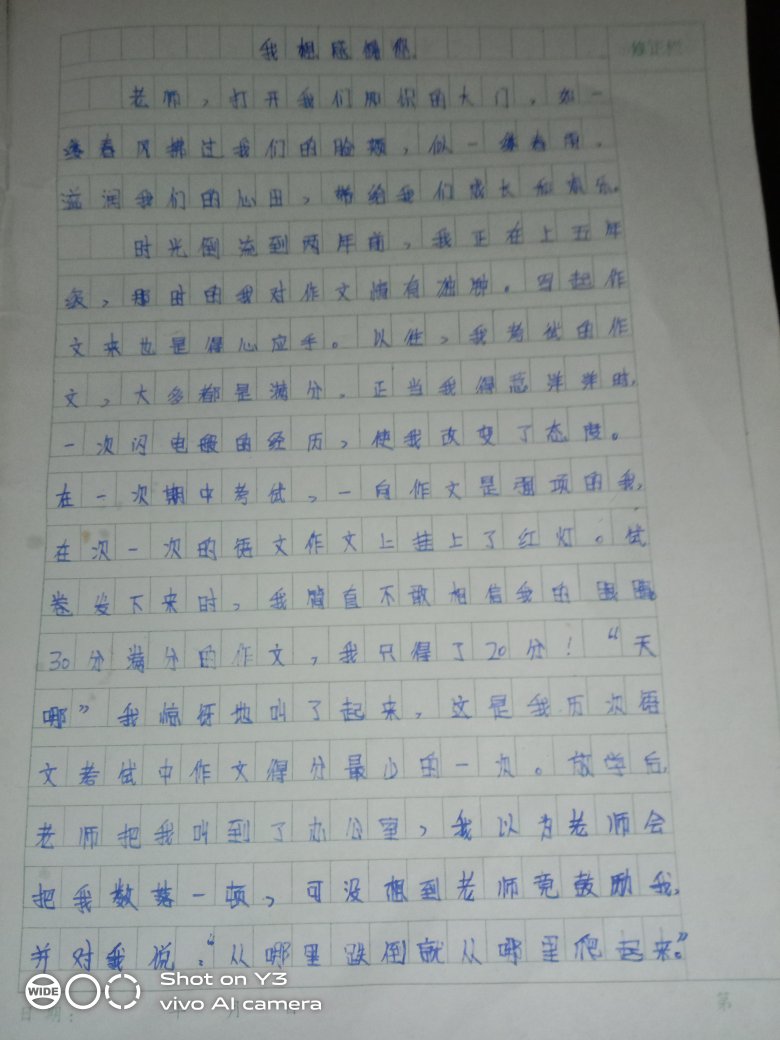 我想感谢您
修正栏
老师，打开我们知识的大门，如一
缕春风拂过我们的脸颊，似一缕春雨，
滋润我们的心田，带给我们成长和欢乐。
时光倒流到两年前，我正在上五年
级，那时的我对作文情有独钟。写起作
文来也是得心应手。以往，我考试的作
文，大多都是满分。正当我得意洋洋时，
一次闪电般的经历，使我改变了态度。
在一次期中考试，一向作文是强项的我，
在次一次的语文作文上挂上了红灯。试
卷发下来时，我简直不敢相信我的
30分满分的作文，我只得了20分！“天
哪”我惊讶地叫了起来，这是我历次语
文考试中作文得分最少的一次。放学后，
老师把我叫到了办公室，我以为老师会
把我数落一顿，可没想到老师竟鼓励我，
并对我说：“从哪里跌倒就从哪里爬起来。”
日期： 年 月 第
WIDE
Shot on Y3
vivo AI camera